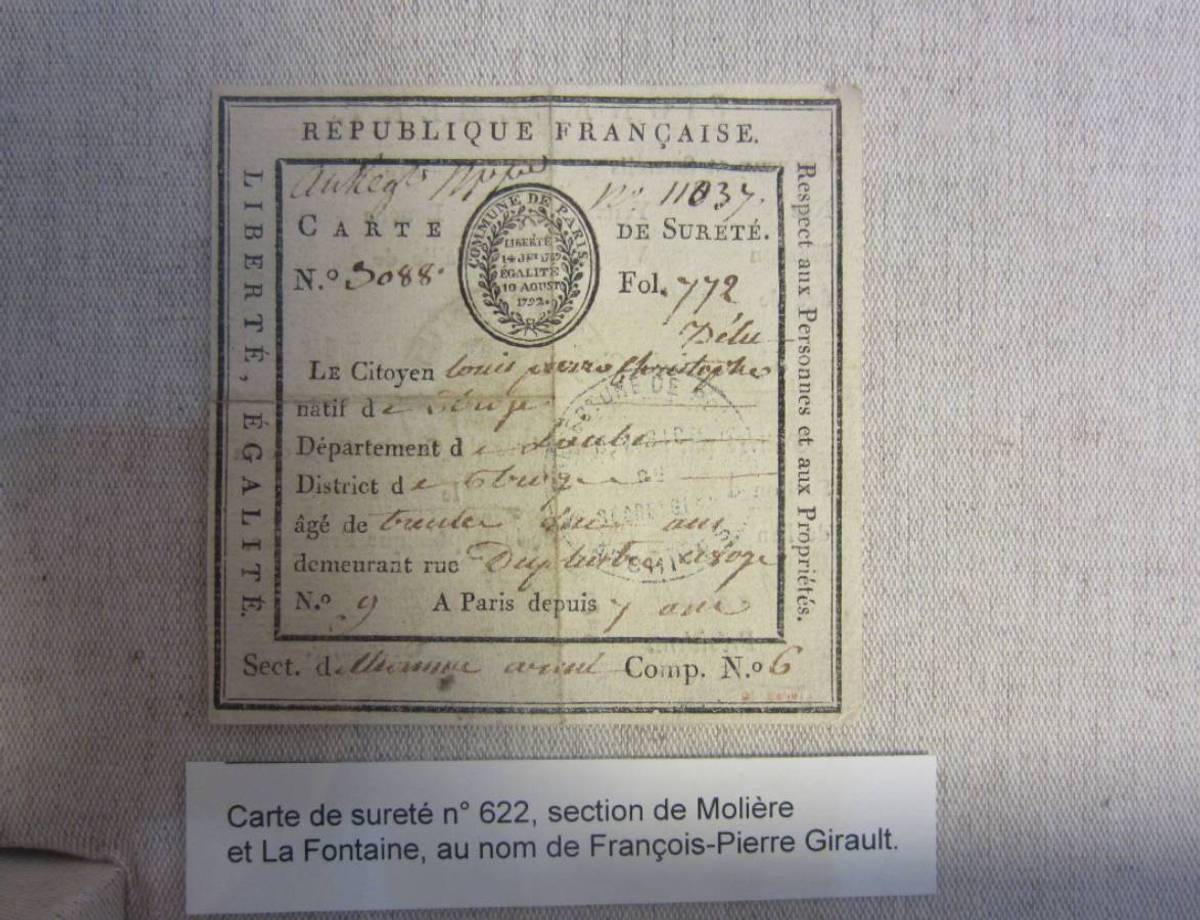 RÉPUBLIQUE FRANÇAISE.
LIBERTÉ, ÉGALITÉ.
Respect aux Personnes et aux Propriétés.
No. 11037.
CARTE DE SURETÉ.
COMMUNE DE PARIS.
LIBERTÉ
14 JET 1789
ÉGALITÉ
10 AOUST
1792.
N.º 3088. Fol. 772
LE Citoyen Louis pierre Christophe
natif de
Département de Laube
District de
âgé de trente ans
demeurant rue
N.º 9 A Paris depuis 7 ans
Sect. de lhomme armé Comp. N.º 6
Carte de sureté n° 622, section de Molière
et La Fontaine, au nom de François-Pierre Girault.